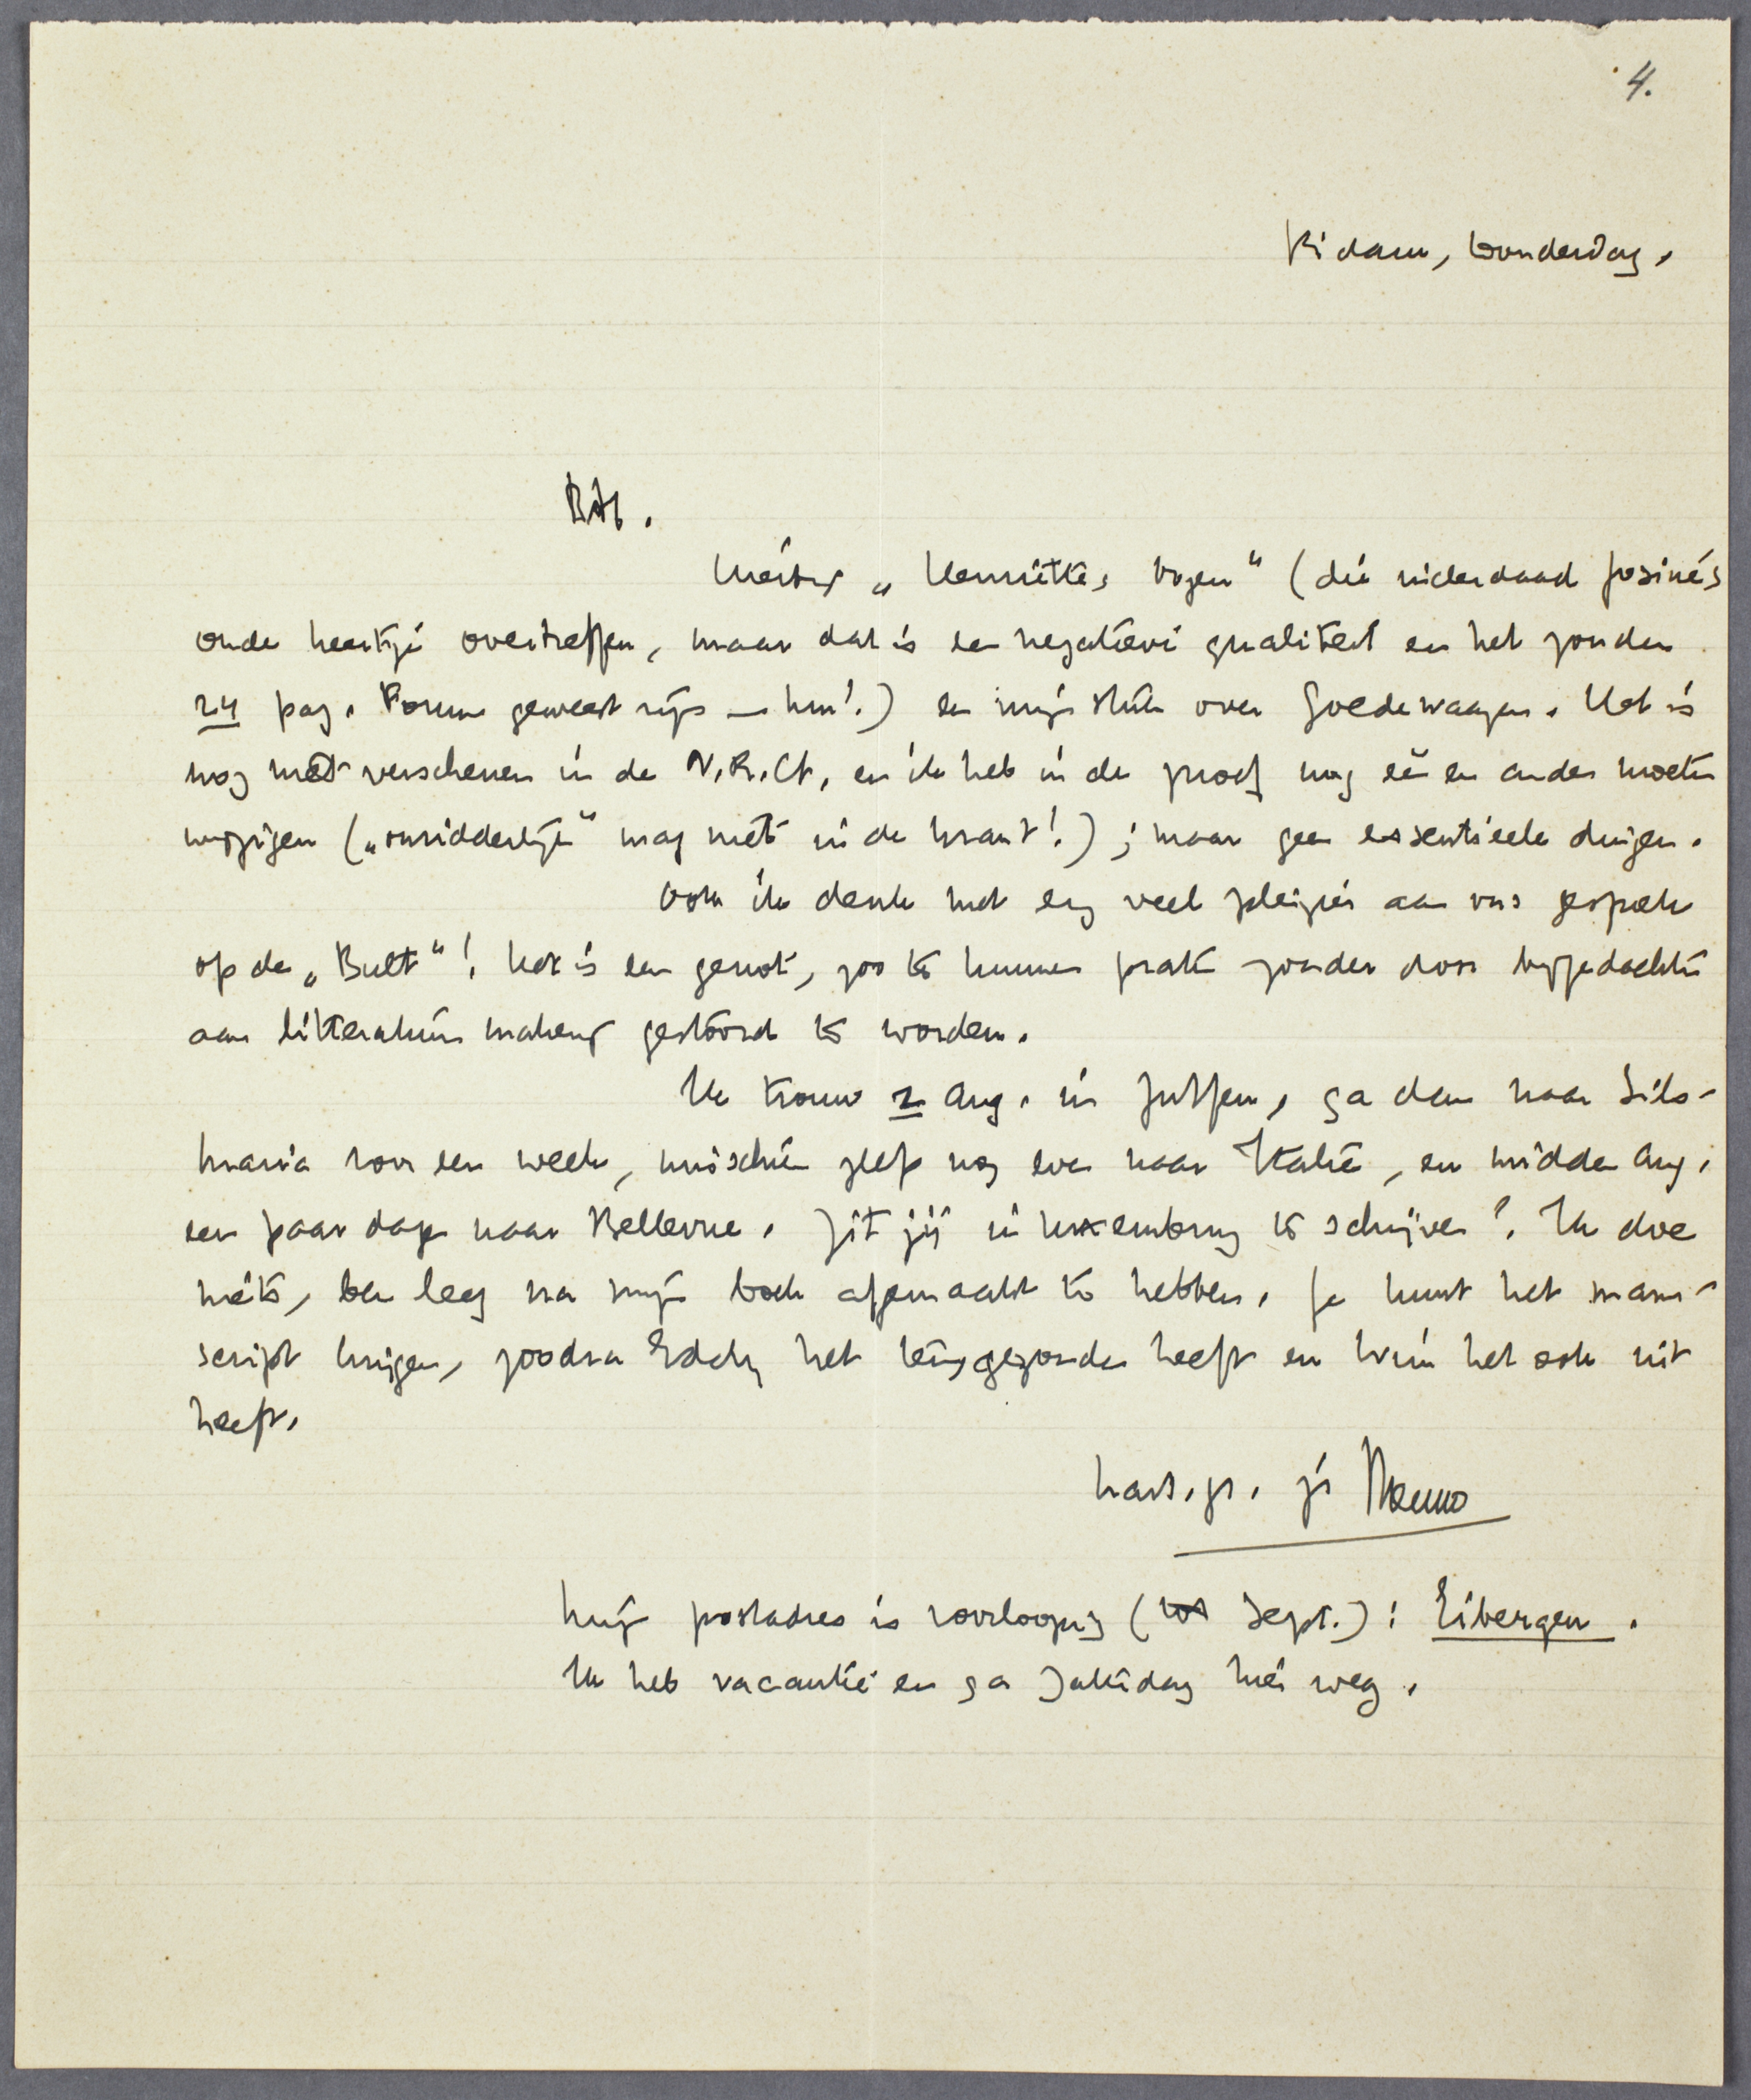 4.
R'dam, Donderdag.
B.H.
Hierbij „Henriette's oogen" (die inderdaad Josine's
oude heertje overtreffen, maar dat is een negatieve qualiteit en het zouden
24 pag. Forum geweest zijn — hm!) en mijn stuk over Goedewaagen. Het is
nog niet verschenen in de N.R.Ct, en ik heb in de proef nog één en ander moeten
wijzigen („onridderlijk" mag niet in de krant!); maar geen essentieele dingen.
Ook ik denk met erg veel pleizier aan ons gesprek
op de „Bult"! Het is een genot, zoo te kunnen praten zonder door bijgedachten
aan litteratuurmakerij gestoord te worden.
Ik trouw 2 Aug. in Zutfen, ga dan naar Sils-
Maria voor een week, misschien zelf nog even naar Italië, en midden Aug.
een paar dagen naar Bellevue. Zit jij in Luxemburg te schrijven? Ik doe
niets, ben leeg na mijn boek afgemaakt te hebben. Je kunt het manu-
script krijgen, zoodra Eddy het teruggezonden heeft en Wim het ook uit
heeft.
hart. gr. je Menno
Mijn postadres is voorloopig (tot Sept.): Eibergen.
Ik heb vacantie en ga Zaterdag hier weg.